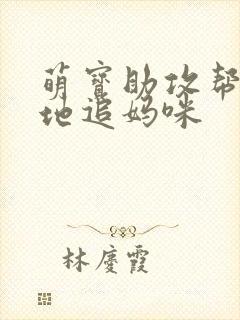 萌寶助攻幫
地追媽咪
林慶霞